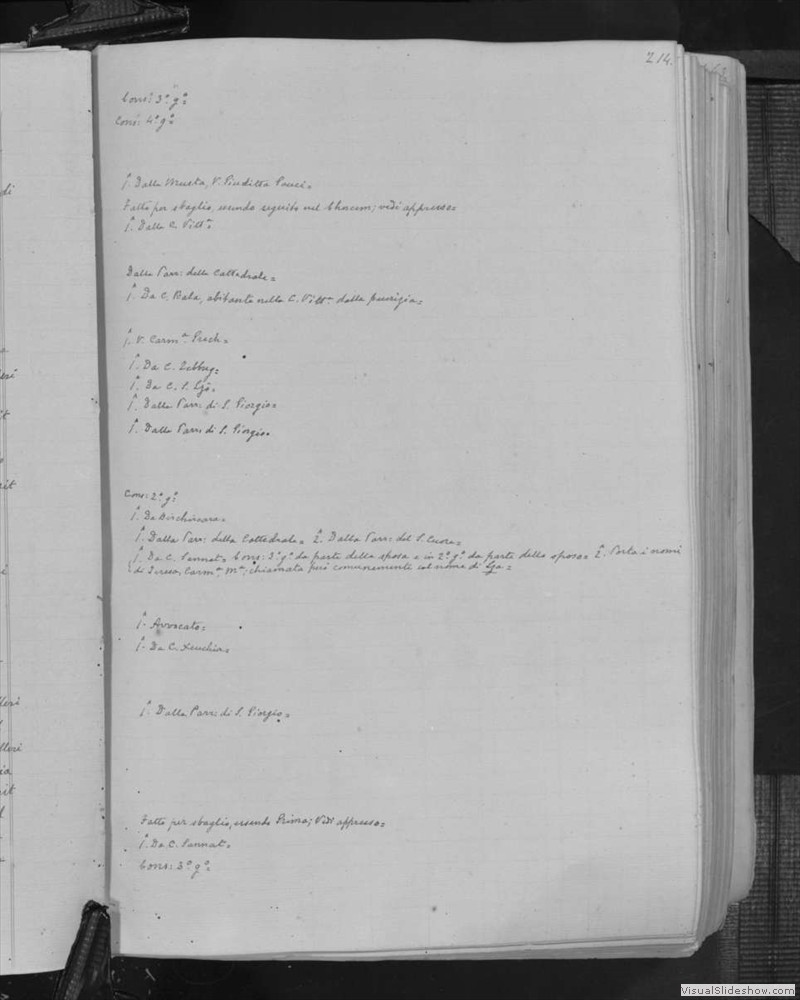 214.
Cons: 3° g°=
Cons: 4° g°=
1°. Dalla Musta, V. Giuditta
Fatto per sbaglio, essendo seguito nel; vedi appresso=
1°. Dalla C. Vitt^a=
Dalla Parr: della Cattedrale=
1°. Da C. Raba, abitante nella C. Vitt^a dalla puerizia=
1°. V. Carm^a.
1°. Da C. Zebbug=
1°. Da C. S.
1°. Dalla Parr: di S. Giorgio=
1°. Dalla Parr: di S. Giorgio=
Cons: 2° g°
1°. Da Birchircara=
1°. Dalla Parr: della Cattedrale= 2°. Dalla Parr: del S. Cuore=
1°. Da C. Sannat= Cons: 3° g° da parte della sposa e in 2° g° da parte dello sposo= 2°. Porta i nomi
di Teresa, Carm^a, M^a; chiamata però comunemente col nome di
1°. Avvocato=
1°. Da C. Xeuchia=
1°. Dalla Parr: di S. Giorgio=
Fatto per sbaglio, essendo Prima; Vedi appresso=
1°. Da C. Sannat=
Cons: 3° g°=
VisualSlideshow.com